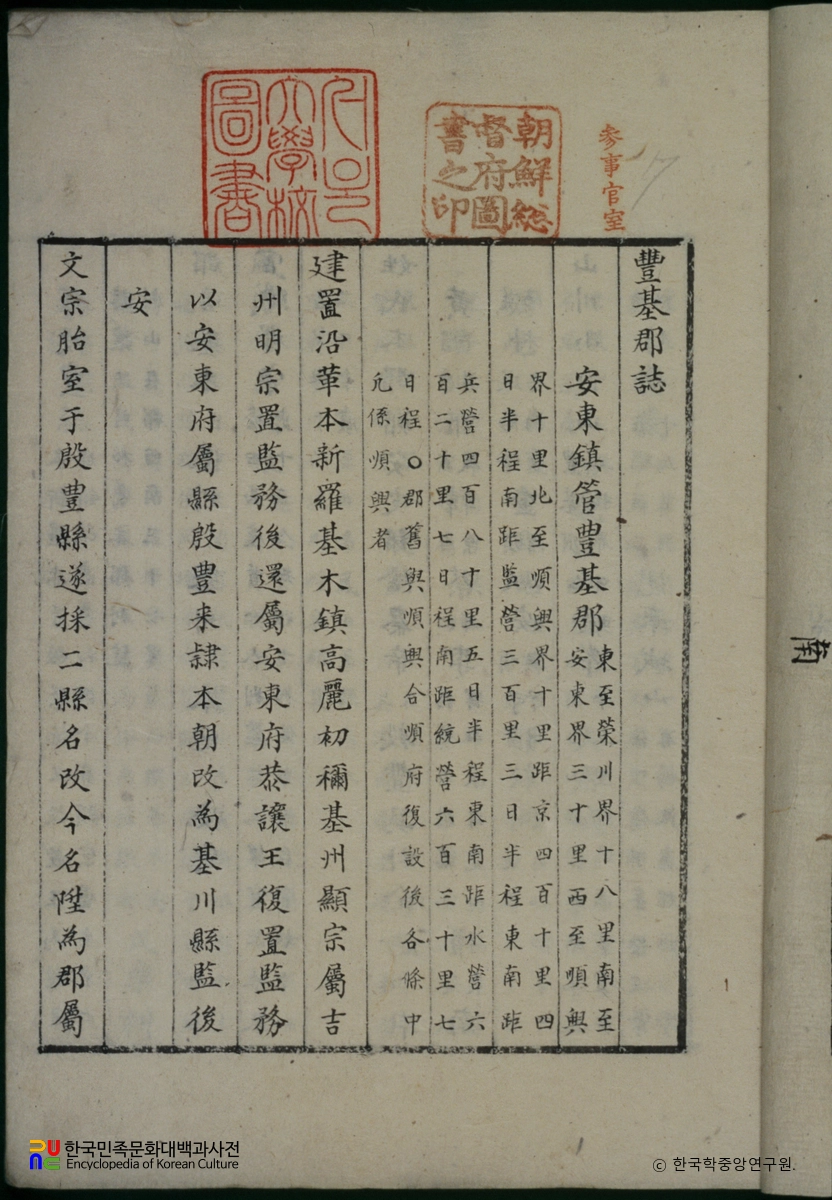 参事官室
朝鮮総
督府圖
書之印
서울
大學校
圖書
豐基郡誌
安東鎮管豊基郡
東至榮川界十八里南至
安東界三十里西至順興
界十里北至順興界十里距京四百十里四
日半程南距監營三百里三日半程東南距
兵營四百八十里五日半程東南距水營六
百二十里七日程南距統營六百三十里七
日程○郡舊與順興合順府復設後各條中
凡係順興者
建置沿革本新羅基木鎮高麗初稱基州顯宗屬吉
州明宗置監務後還屬安東府恭讓王復置監務
以安東府屬縣殷豊来隷本朝改為基川縣監後
安
文宗胎室于殷豊縣遂採二縣名改今名陞為郡屬
한국민족문화대백과사전
Encyclopedia of Korean Culture
ⓒ 한국학중앙연구원.